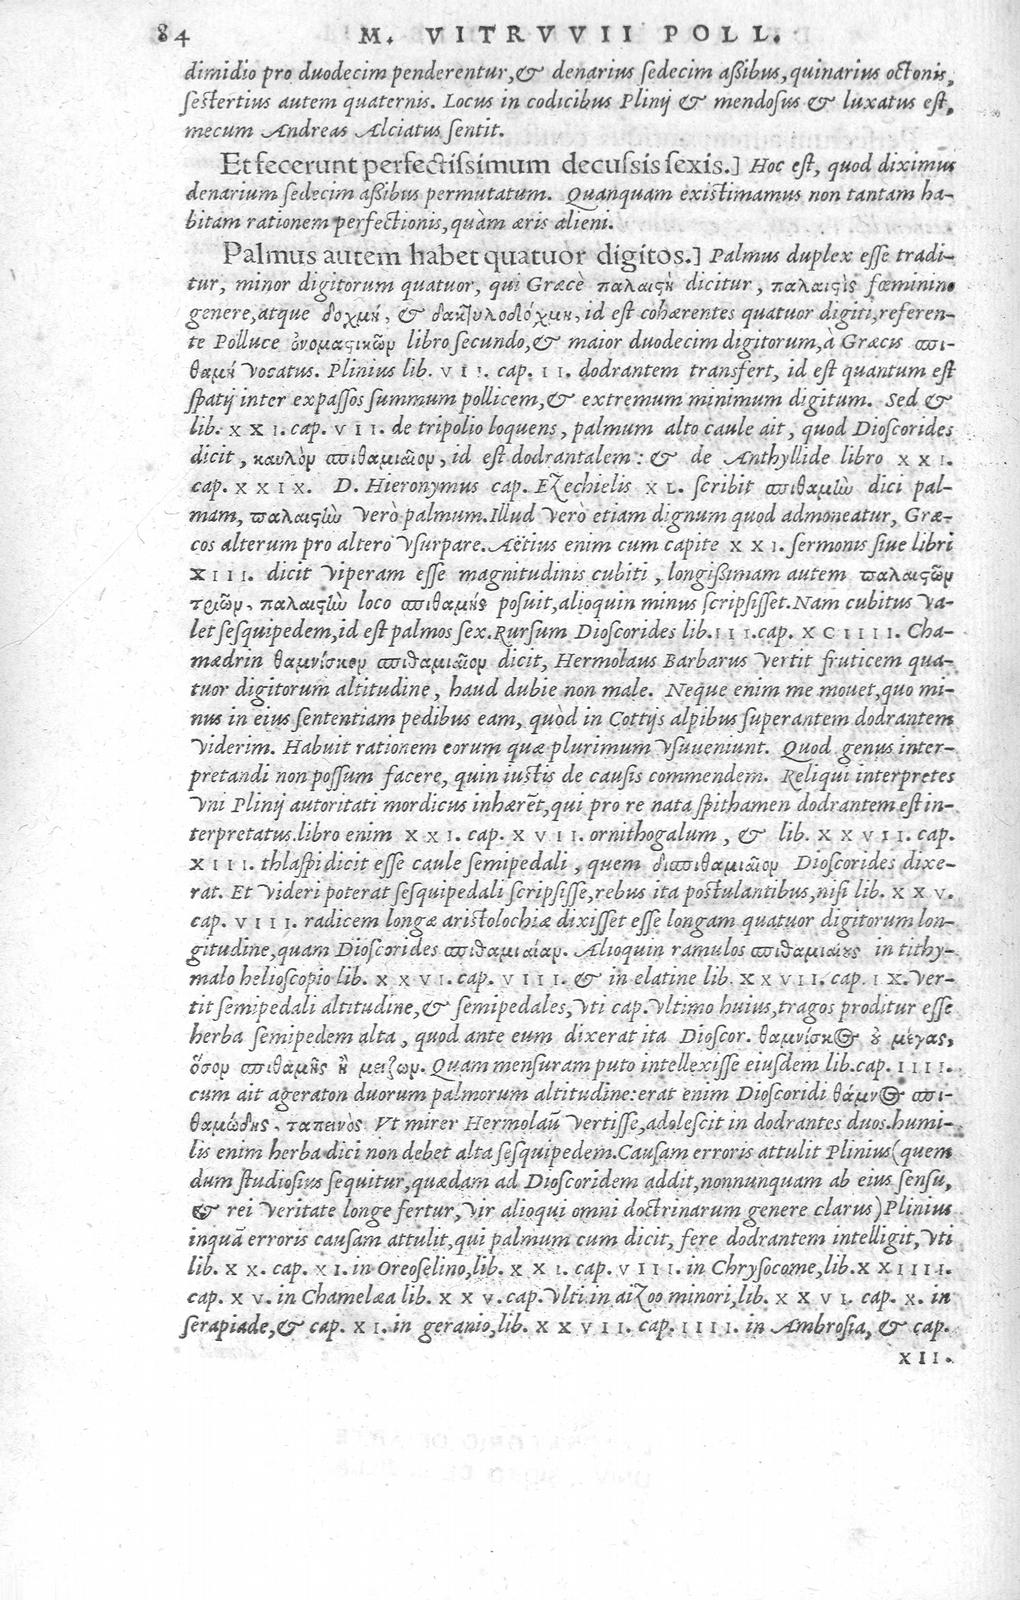 84 M. VITRVVII POLL.
dimidio pro duodecim penderentur, & denarius sedecim aßibus, quinarius octonis,
sestertius autem quaternis. Locus in codicibus Plinij & mendosus & luxatus est,
mecum Andreas Alciatus sentit.
Et fecerunt perfectissimum decussis sexis.] Hoc est, quod diximus
denarium sedecim aßibus permutatum. Quanquam existimamus non tantam ha-
bitam rationem perfectionis, quàm æris alieni.
Palmus autem habet quatuor digitos.] Palmus duplex esse tradi-
tur, minor digitorum quatuor, qui Græcè παλαιϛὴ dicitur, παλαιϛὶς fœminino
genere, atque δοχμὴ, & δακτυλοδόχμη, id est cohærentes quatuor digiti, referen-
te Polluce ὀνομαϛικῶν libro secundo, & maior duodecim digitorum, à Græcis σπι-
θαμὴ vocatus. Plinius lib. VII. cap. II. dodrantem transfert, id est quantum est
spatij inter expassos summum pollicem, & extremum minimum digitum. Sed &
lib. XXI. cap. VII. de tripolio loquens, palmum alto caule ait, quod Dioscorides
dicit, καυλὸν σπιθαμιαῖον, id est dodrantalem: & de Anthyllide libro XXI.
cap. XXIX. D. Hieronymus cap. Ezechielis XL. scribit σπιθαμὴν dici pal-
mam, παλαιϛὴν verò palmum. Illud verò etiam dignum quod admoneatur, Græ-
cos alterum pro altero vsurpare. Aëtius enim cum capite XXI. sermonis siue libri
XIII. dicit viperam esse magnitudinis cubiti, longißimam autem παλαιϛῶν
τριῶν, παλαιϛὴν loco σπιθαμῆς posuit, alioquin minus scripsisset. Nam cubitus va-
let sesquipedem, id est palmos sex. Rursum Dioscorides lib. III. cap. XCIIII. Cha-
mædrin θαμνίσκον σπιθαμιαῖον dicit, Hermolaus Barbarus vertit fruticem qua-
tuor digitorum altitudine, haud dubie non male. Neque enim me mouet, quo mi-
nus in eius sententiam pedibus eam, quòd in Cottijs alpibus superantem dodrantem
viderim. Habuit rationem eorum quæ plurimum vsuueniunt. Quod genus inter-
pretandi non possum facere, quin iustis de causis commendem. Reliqui interpretes
vni Plinij autoritati mordicus inhærẽt, qui pro re nata spithamen dodrantem est in-
terpretatus. libro enim XXI. cap. XVII. ornithogalum, & lib. XXVII. cap.
XIII. thlaspi dicit esse caule semipedali, quem δισπιθαμιαῖον Dioscorides dixe-
rat. Et videri poterat sesquipedali scripsisse, rebus ita postulantibus, nisi lib. XXV.
cap. VIII. radicem longæ aristolochiæ dixisset esse longam quatuor digitorum lon-
gitudine, quam Dioscorides σπιθαμιαίαν. Alioquin ramulos σπιθαμιαίους in tithy-
malo helioscopio lib. XXVI. cap. VIII. & in elatine lib. XXVII. cap. IX. ver-
tit semipedali altitudine, & semipedales, vti cap. vltimo huius, tragos proditur esse
herba semipedem alta, quod ante eum dixerat ita Dioscor. θαμνίσκος οὐ μέγας,
ὅσον σπιθαμῆς ἢ μείζων. Quam mensuram puto intellexisse eiusdem lib. cap. IIII.
cum ait ageraton duorum palmorum altitudine: erat enim Dioscoridi θάμνος σπι-
θαμώδης, ταπεινὸς. Vt mirer Hermolaũ vertisse, adolescit in dodrantes duos. humi-
lis enim herba dici non debet alta sesquipedem. Causam erroris attulit Plinius (quem
dum studiosius sequitur, quædam ad Dioscoridem addit, nonnunquam ab eius sensu,
& rei veritate longe fertur, vir alioqui omni doctrinarum genere clarus) Plinius
inquã erroris causam attulit, qui palmum cum dicit, fere dodrantem intelligit, vti
lib. XX. cap. XI. in Oreoselino, lib. XXI. cap. VIII. in Chrysocome, lib. XXIIII.
cap. XV. in Chamelæa lib. XXV. cap. vlti. in aizoo minori, lib. XXVI. cap. X. in
serapiade, & cap. XI. in geranio, lib. XXVII. cap. IIII. in Ambrosia, & cap.
XII.